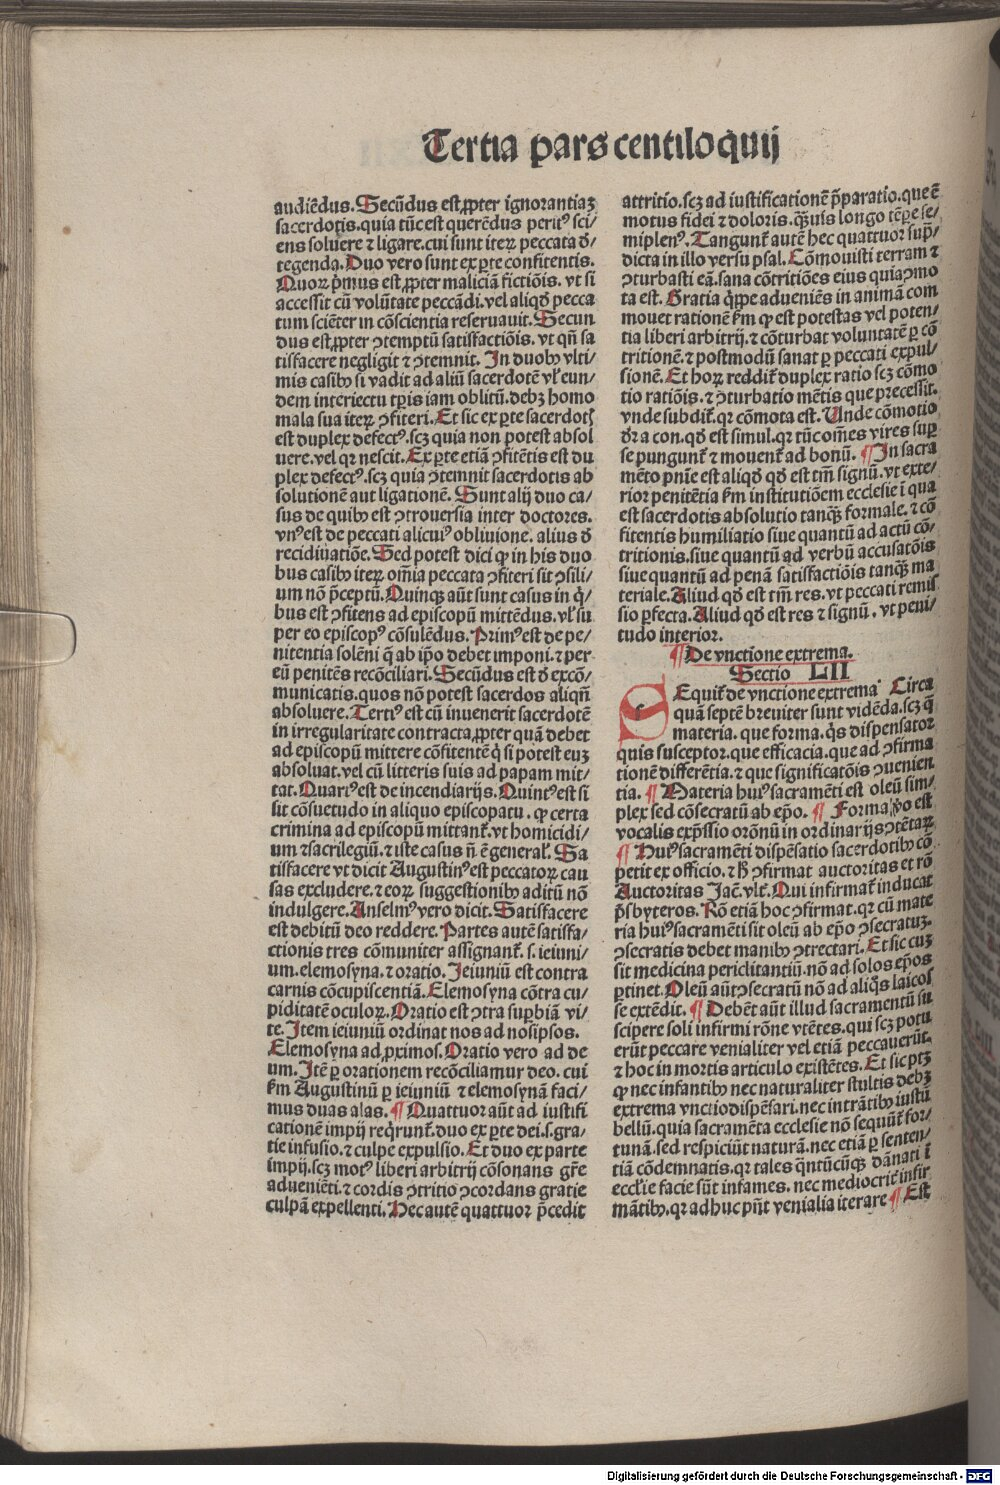 Tertia pars centiloquij
audiēdus. Secūdus est ꝓpter ignorantiaꝫ
sacerdotis. quia tūc est querēdus peritꝰ sci/
ens soluere ⁊ ligare. cui sunt iteꝝ peccata ꝺ̄/
tegenda. Duo vero sunt ex ꝑte confitentis.
Quoꝝ p̄mus est ꝓpter maliciam fictiōis. vt si
accessit cū volūtate peccādi. vel aliqꝺ̄ pecca
tum sciēter in cōscientia reseruauit. Secun
dus est ꝓpter ꝯtemptū satisfactiōis. vt qn̄ sa
tisfacere negligit ⁊ ꝯtemnit. In duobꝰ vlti/
mis casibꝰ si vadit ad aliū sacerdotē vl̓ eun/
dem interiectu tꝑis iam oblitū. debꝫ homo
mala sua iteꝝ ꝯfiteri. Et sic ex ꝑte sacerdotꝭ
est duplex defectꝰ. scꝫ quia non potest absol
uere. vel qꝛ nescit. Ex ꝑte etiā ꝯfitētis est du
plex defectꝰ. scꝫ quia ꝯtemnit sacerdotis ab
solutionē aut ligationē. Sunt alij duo ca/
sus de quibꝰ est ꝯtrouersia inter doctores.
vnꝰ est de peccati alicuiꝰ obliuione. alius ꝺ̄
recidiuatiōe. Sed potest dici ꝙ in his duo
bus casibꝰ iteꝝ om̄ia peccata ꝯfiteri sit ꝯsili/
um nō p̄ceptū. Quinqꝫ aūt sunt casus in q̇/
bus est ꝯfitens ad episcopū mittēdus. vl̓ su
per eo episcopꝰ cōsulēdus. Primꝰ est de pe/
nitentia solēni q̄ ab ip̄o debet imponi. ⁊ per
eū penitēs recōciliari. Secūdus est ꝺ̄ excō/
municatis. quos nō potest sacerdos aliqn̄
absoluere. Tertiꝰ est cū inuenerit sacerdotē
in irregularitate contracta. ꝓpter quā debet
ad episcopū mittere cōfitentē q̇ si potest euꝫ
absoluat. vel cū litteris suis ad papam mit/
tat. Quartꝰ est de incendiarijs. Quintꝰ est si
sit cōsuetudo in aliquo episcopatu. ꝙ certa
crimina ad episcopū mittant̄. vt homicidi/
um ⁊ sacrilegiū. ⁊ iste casus n̄ ē general̓. Sa
tisfacere vt dicit Augustinꝰ est peccatoꝝ cau
sas excludere. ⁊ eoꝝ suggestionibꝰ aditū nō
indulgere. Anselmꝰ vero dicit. Satisfacere
est debitū deo reddere. Partes autē satisfa/
ctionis tres cōmuniter assignant̄. s. ieiuni/
um. elemosyna. ⁊ oratio. Ieiuniū est contra
carnis cōcupiscentiā. Elemosyna cōtra cu/
piditatē oculoꝝ. Oratio est ꝯtra suꝑbiā vi/
te. Item ieiuniū ordinat nos ad nosipsos.
Elemosyna ad ꝓximos. Oratio vero ad de
um. Itē ꝑ orationem recōciliamur deo. cui
ẜm Augustinū ꝑ ieiuniū ⁊ elemosynā faci/
mus duas alas. ¶ Quattuor aūt ad iustifi
cationē impij req̇runt̄. duo ex ꝑte dei. s. gra/
tie infusio. ⁊ culpe expulsio. Et duo ex parte
impij. scꝫ motꝰ liberi arbitrij cōsonans gr̄e
aduenīeti. ⁊ cordis ꝯtritio ꝯcordans gratie
culpā expellenti. Hec autē quattuor p̄cedit
attritio. scꝫ ad iustificationē p̄paratio. que ē
motus fidei ⁊ doloris. q̄uis longo tēꝑe se/
miplenꝰ. Tangunt̄ autē hec quattuor sup̄/
dicta in illo versu psal. Cōmouisti terram ⁊
ꝯturbasti eā. sana cōtritiōes eius quia ꝯmo
ta est. Gratia q̇ppe adueniēs in animā com
mouet rationē ẜm ꝙ est potestas vel poten/
tia liberi arbitrij. ⁊ cōturbat voluntatē ꝑ cō
tritionē. ⁊ postmodū sanat ꝑ peccati expul/
sionē. Et hoꝝ reddit̄ duplex ratio scꝫ cōmo
tio ratiōis. ⁊ ꝯturbatio mētis que precessit.
vnde subdit̄. qꝛ cōmota est. Unde cōmotio
ꝺ̄r a con. qꝺ̄ est simul. qꝛ tūc om̄es vires suꝑ
se pungunt̄ ⁊ mouent̄ ad bonū. ¶ In sacra
mēto pn̄ie est aliqꝺ̄ qꝺ̄ est tm̄ signū. vt exte/
rior penitētia ẜm institutiōem ecclesie ī qua
est sacerdotis absolutio tanqꝫ̄ formale. ⁊ cō
fitentis humiliatio siue quantū ad actū cō/
tritionis. siue quantū ad verbū accusatōis
siue quantū ad penā satisfactiōis tanqꝫ̄ ma
teriale. Aliud qꝺ̄ est tm̄ res. vt peccati remis
sio ꝑfecta. Aliud qꝺ̄ est res ⁊ signū. vt peni/
tudo interior.
¶ De vnctione extrema.
Sectio LII
SEquit̄ de vnctione extrema. Circa
quā septē breuiter sunt vidēda. scꝫ q̄
materia. que forma. q̇s dispensator
quis susceptor. que efficacia. que ad ꝯfirma
tionē differētia. ⁊ que significatōis ꝯuenien
tia. ¶ Materia huiꝰ sacramēti est oleū sim/
plex sed cōsecratū ab ep̄o. ¶ Forma v̓o est
vocalis exp̄ssio orōnū in ordinarijs ꝯtētaꝝ
¶ Huiꝰ sacramēti dispēsatio sacerdotibꝰ cō
petit ex officio. ⁊ h̓ ꝯfirmat auctoritas et rō
Auctoritas Jac̄. vlt̄. Qui infirmat̄ inducat
p̄sbyteros. Rō etiā hoc ꝯfirmat. qꝛ cū mate
ria huiꝰ sacramēti sit oleū ab ep̄o ꝯsecratuꝫ.
ꝯsecratis debet manibꝰ ꝯtrectari. Et sic cuꝫ
sit medicina periclitantiū. nō ad solos ep̄os
ꝑtinet. Oleū aūt ꝯsecratū nō ad aliq̇s laicos
se extēdit. ¶ Debēt aūt illud sacramentū su
scipere soli infirmi rōne vtētes. qui scꝫ potu
erūt peccare venialiter vel etiā peccauerūt.
⁊ hoc in mortis articulo existētes. Et sic ptꝫ
ꝙ nec infantibꝰ nec naturaliter stultis debꝫ
extrema vnctio dispēsari. nec intrātibꝰ iustū
bellū. quia sacramēta ecclesie nō sequūt̄ for/
tunā. sed respiciūt naturā. nec etiā ꝑ senten/
tiā cōdemnatis. qꝛ tales q̄ntūcūqꝫ dānati ī
eccl̓ie facie sūt infames. nec mediocrit̓ infir
mātibꝰ. qꝛ adhuc pn̄t venialia iterare ¶ Est
Digitalisierung gefördert durch die Deutsche Forschungsgemeinschaft - DFG